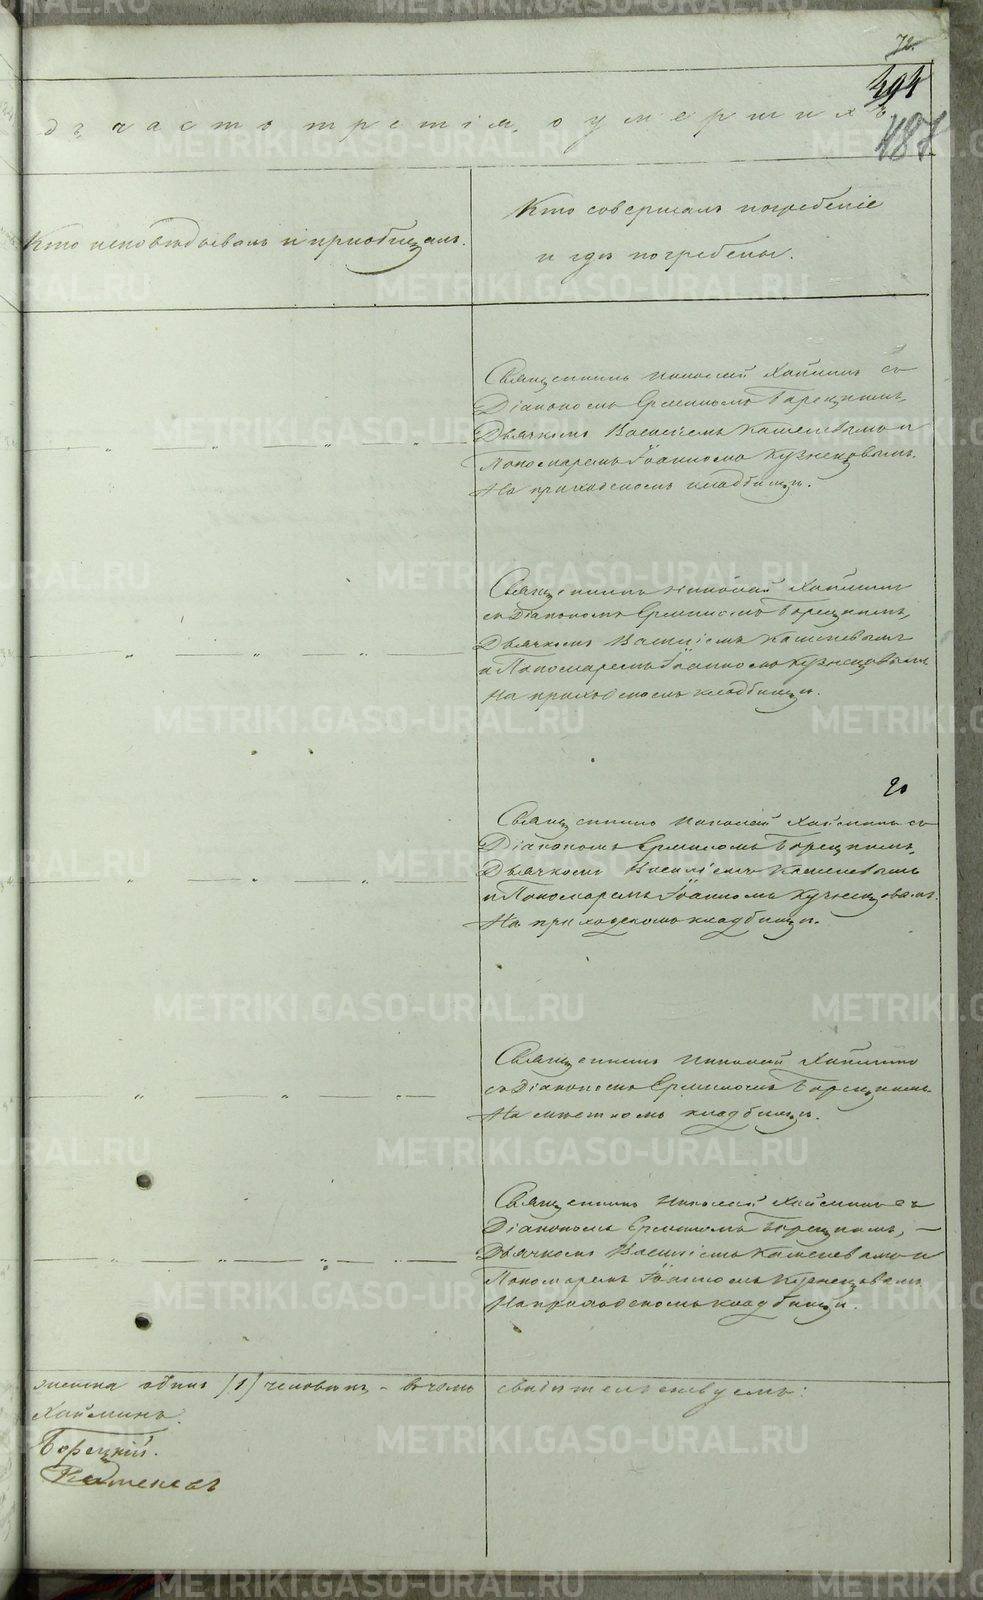 72.
394
487
дъ, часть третія, о умершихъ
Кто исповѣдывалъ и пріобщалъ.
Кто совершалъ погребеніе
и гдѣ погребены.
Священникъ Николай Хайминъ съ
Діакономъ Ермиломъ Борецкимъ,
Дьячкомъ Василіемъ Кашелевымъ и
Пономаремъ Іоанномъ Кузнецовымъ.
На приходскомъ кладбищѣ.
Священникъ Николай Хайминъ
съ Діакономъ Ермиломъ Борецкимъ,
Дьячкомъ Василіемъ Кашелевымъ
и Пономаремъ Іоанномъ Кузнецовымъ
На приходскомъ кладбищѣ.
20
Священникъ Николай Хайминъ съ
Діакономъ Ермиломъ Борецкимъ,
Дьячкомъ Василіемъ Кашелевымъ
и Пономаремъ Іоанномъ Кузнецовымъ.
На приходскомъ кладбищѣ.
Священникъ Николай Хайминъ
съ Діакономъ Ермиломъ Борецкимъ.
На мѣстномъ кладбищѣ.
Священникъ Николай Хайминъ съ
Діакономъ Ермиломъ Борецкимъ, —
Дьячкомъ Василіемъ Кашелевымъ и
Пономаремъ Іоанномъ Кузнецовымъ
На приходскомъ кладбищѣ.
женска одинъ (1) человѣкъ - въ чемъ свидѣтельствуемъ:
Хайминъ.
Борецкій.
METRIKI.GASO-URAL.RU